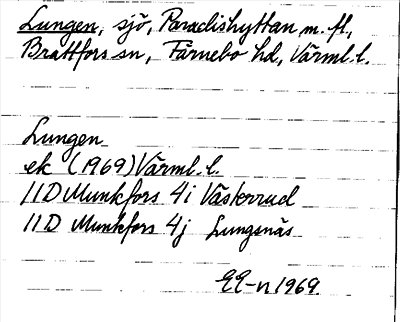 Lungen, sjö, Paradishyttan m. fl.,
Brattfors sn, Färnebo hd, Värml. l.
Lungen
ek (1969) Värml. l.
11D Munkfors 4i Västerrud
11D Munkfors 4j Lungsnäs
EE-n 1969.